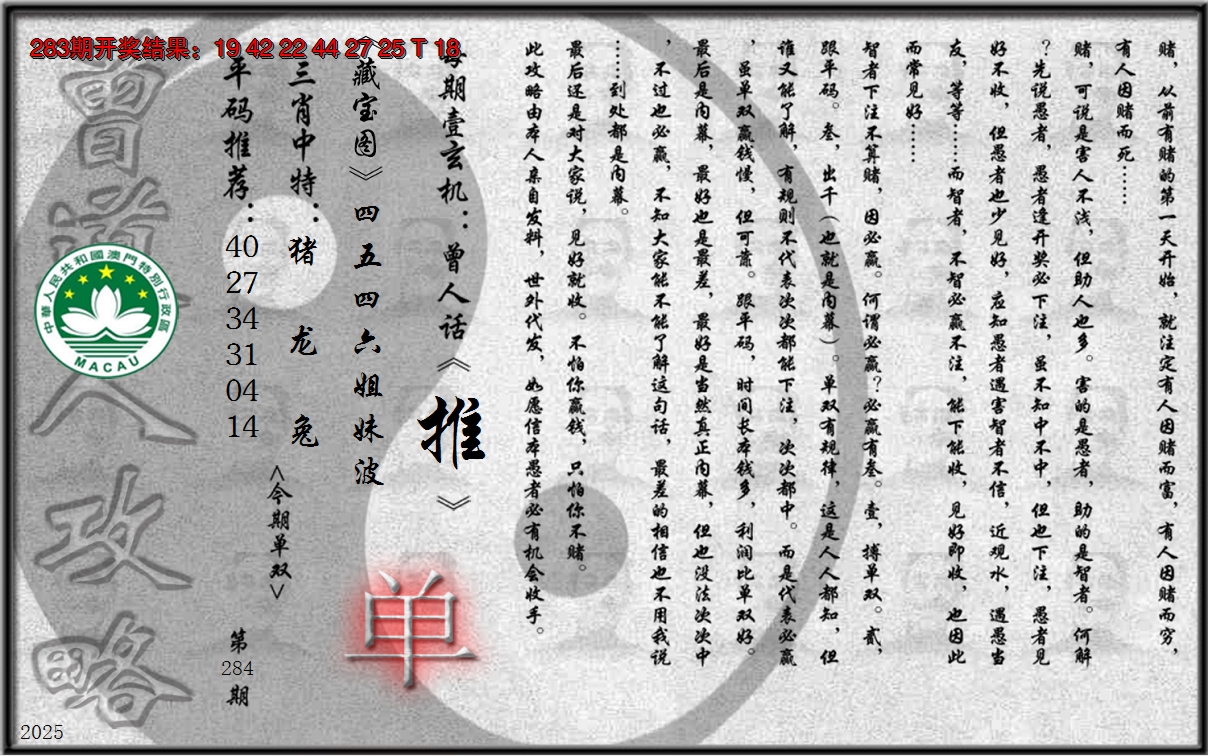 283期开奖结果：19 42 22 44 27 25 T 18
赌，从前有赌的第一天开始，就注定有人因赌而富，有人因赌而穷，
有人因赌而死……
赌，可说是害人不浅，但助人也多。害的是愚者，助的是智者。何解
？先说愚者，愚者逢开奖必下注，虽不知中不中，但也下注，愚者见
好不收，但愚者也少见好，应知愚者遇害智者不信，近观水，遇愚当
友，等等……而智者，不智必赢不注，能下能收，见好即收，也因此
而常见好……
智者下注不算赌，因必赢。何谓必赢？必赢有叁。壹，搏单双。贰，
跟平码。叁，出千（也就是内幕）。单双有规律，这是人人都知，但
谁又能了解，有规则不代表次次都能下注，次次都中。而是代表必赢
，虽单双赢钱慢，但可靠。跟平码，时间长本钱多，利润比单双好。
最后是内幕，最好也是最差，最好是当然真正内幕，但也没法次次中
，不过也必赢，不知大家能不能了解这句话，最差的相信也不用我说
……到处都是内幕。
最后还是对大家说，见好就收。不怕你赢钱，只怕你不赌。
此攻略由本人亲自发料，世外代发，如愿信本愚者必有机会收手。
每期壹玄机：曾人话《推》
《藏宝图》四五四六姐妹波
单
三肖中特：猪 龙 兔
<今期单双>
平码推荐：40 27 34 31 04 14
第284期
曾道人攻略
中華人民共和國澳門特別行政區
MACAU
2025